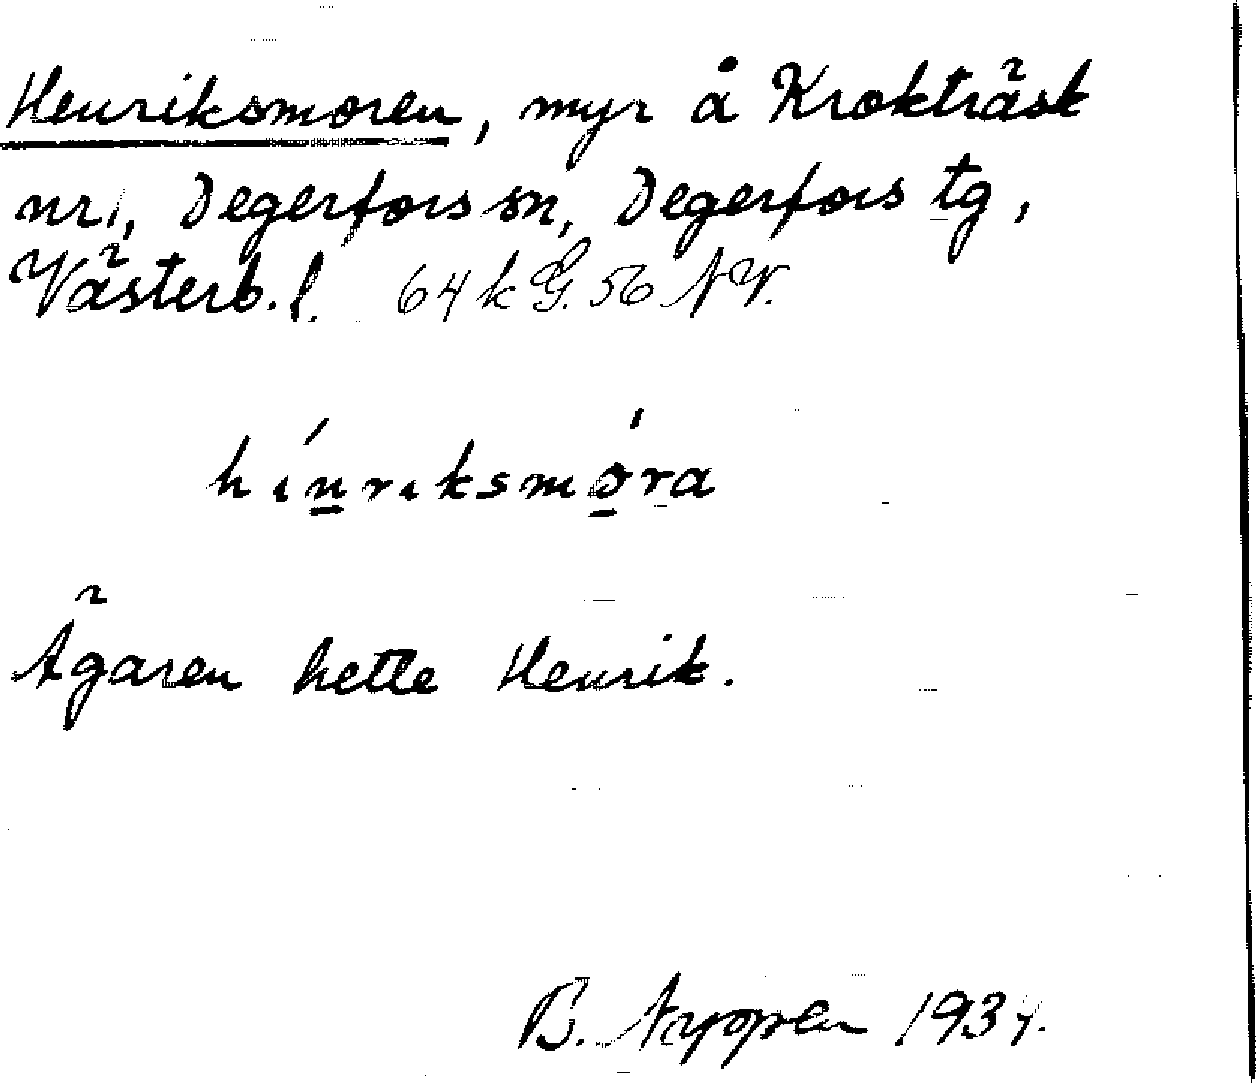 Henriksmoren, myr å Krokträsk
nr 1, Degerfors sn, Degerfors tg,
Västerb. l. 64 k G. 56 NV.
hinriksmöra
Ägaren hette Henrik.
B. 1934.